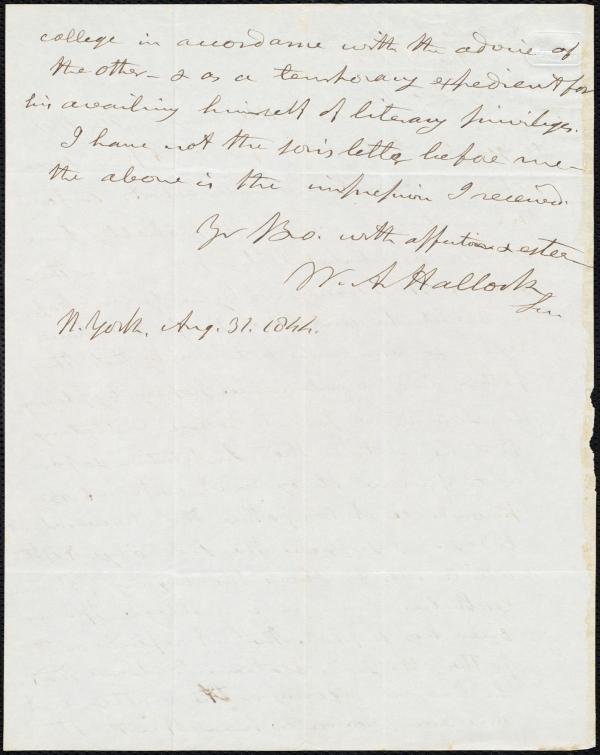 college in accordance with the advice of
the other – & as a temporary expedient for
his availing himself of literary privileges.
I have not the son's letter before me –
the above is the impression I received.
Yr Bro. with affection & esteem
W. A. Hallock
N. York, Aug. 31. 1844.